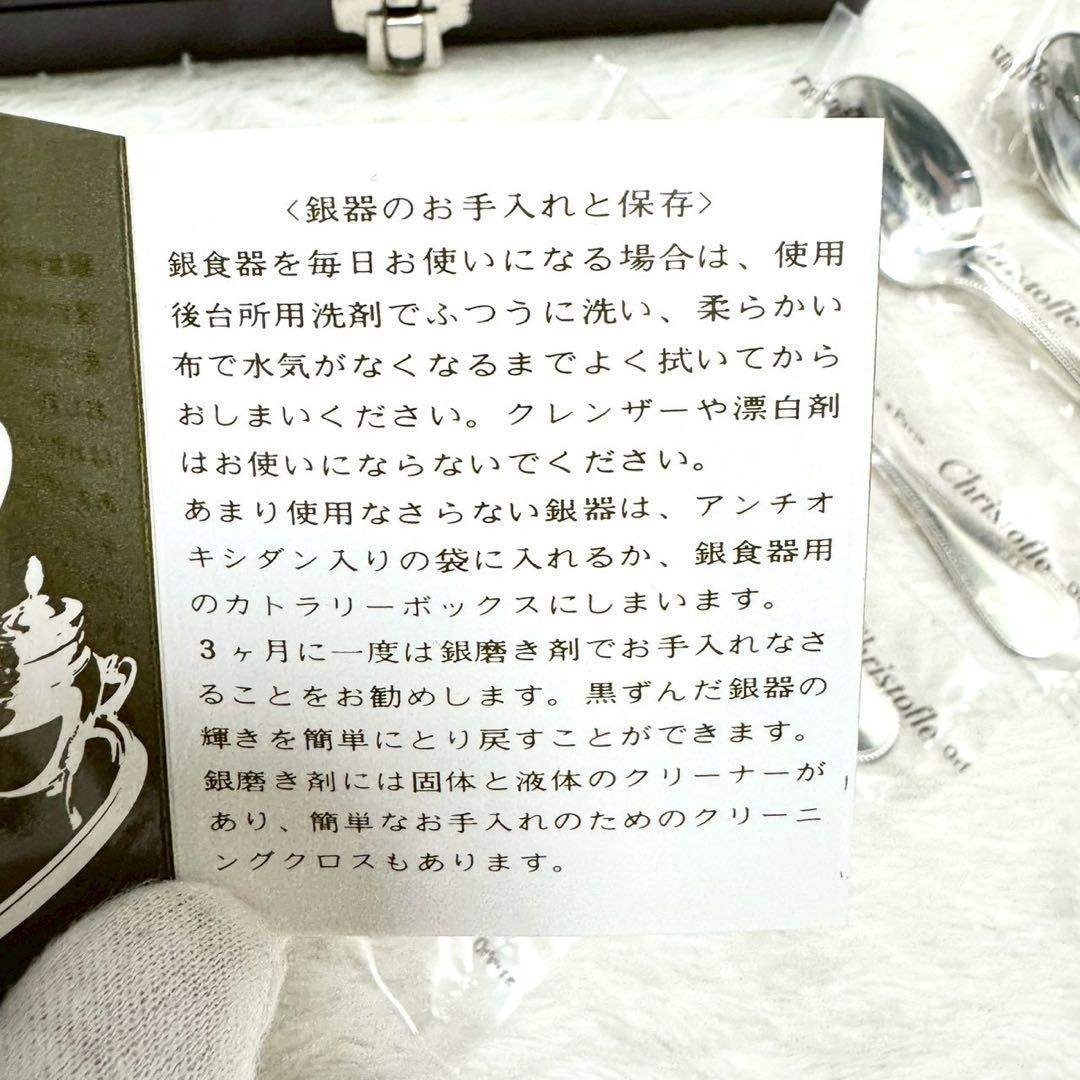 <銀器のお手入れと保存>
銀食器を毎日お使いになる場合は、使用
後台所用洗剤でふつうに洗い、柔らかい
布で水気がなくなるまでよく拭いてから
おしまいください。クレンザーや漂白剤
はお使いにならないでください。
あまり使用なさらない銀器は、アンチオ
キシダン入りの袋に入れるか、銀食器用
のカトラリーボックスにしまいます。
3ヶ月に一度は銀磨き剤でお手入れなさ
ることをお勧めします。黒ずんだ銀器の
輝きを簡単にとり戻すことができます。
銀磨き剤には固体と液体のクリーナーが
あり、簡単なお手入れのためのクリーニ
ングクロスもあります。
Christofle
Christofle